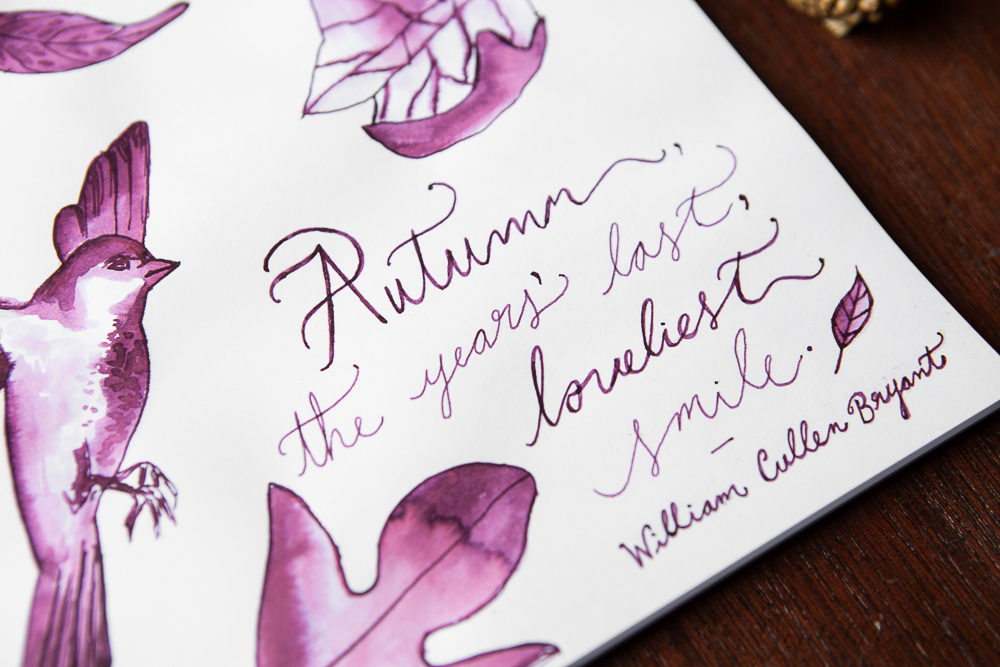 Autumn,
the years' last,
loveliest
smile.
— William Cullen Bryant